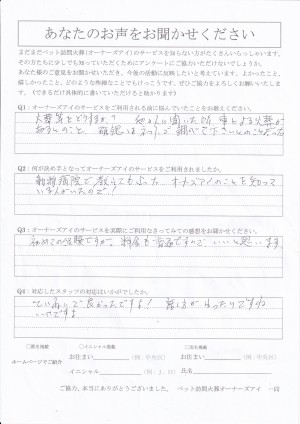 あなたのお声をお聞かせください
まだまだペット訪問火葬(オーナーズアイ)のサービスを知らない方がたくさんいらっしゃいます。
その方たちに少しでも知っていただくためにアンケートにご協力いただけないでしょうか。
あなた様のご意見をお聞かせいただき、今後の活動に反映したいと考えています。よかったこと、
嬉しかったこと、どのような些細なことでもけっこうです。ぜひご協力をよろしくお願いいたします。
(できるだけ具体的に書いていただけると助かります)
Q1:オーナーズアイのサービスをご利用される前に悩んでいたことをお教えください。
火葬等をどうするか?
Q2:何が決め手となってオーナーズアイのサービスをご利用されましたか。
動物病院で教えてもらった。オーナーズアイのことを知って
いる人がいたので!
Q3:オーナーズアイのサービスを実際にご利用なさってみての感想をお聞かせください。
初めての経験ですが、料金も普通ですので いいと思います
Q4:対応したスタッフの対応はいかがでしたか。
ていねいで良かったですよ! 話し方がゆったりですね
いいですよ
□匿名掲載 □イニシャル掲載 □実名掲載
ホームページでご紹介
お住まい (例:中央区) お住まい (例:中央区)
イニシャル (例:J.H) 氏名
ご協力、本当にありがとうございました。 ペット訪問火葬オーナーズアイ 一同